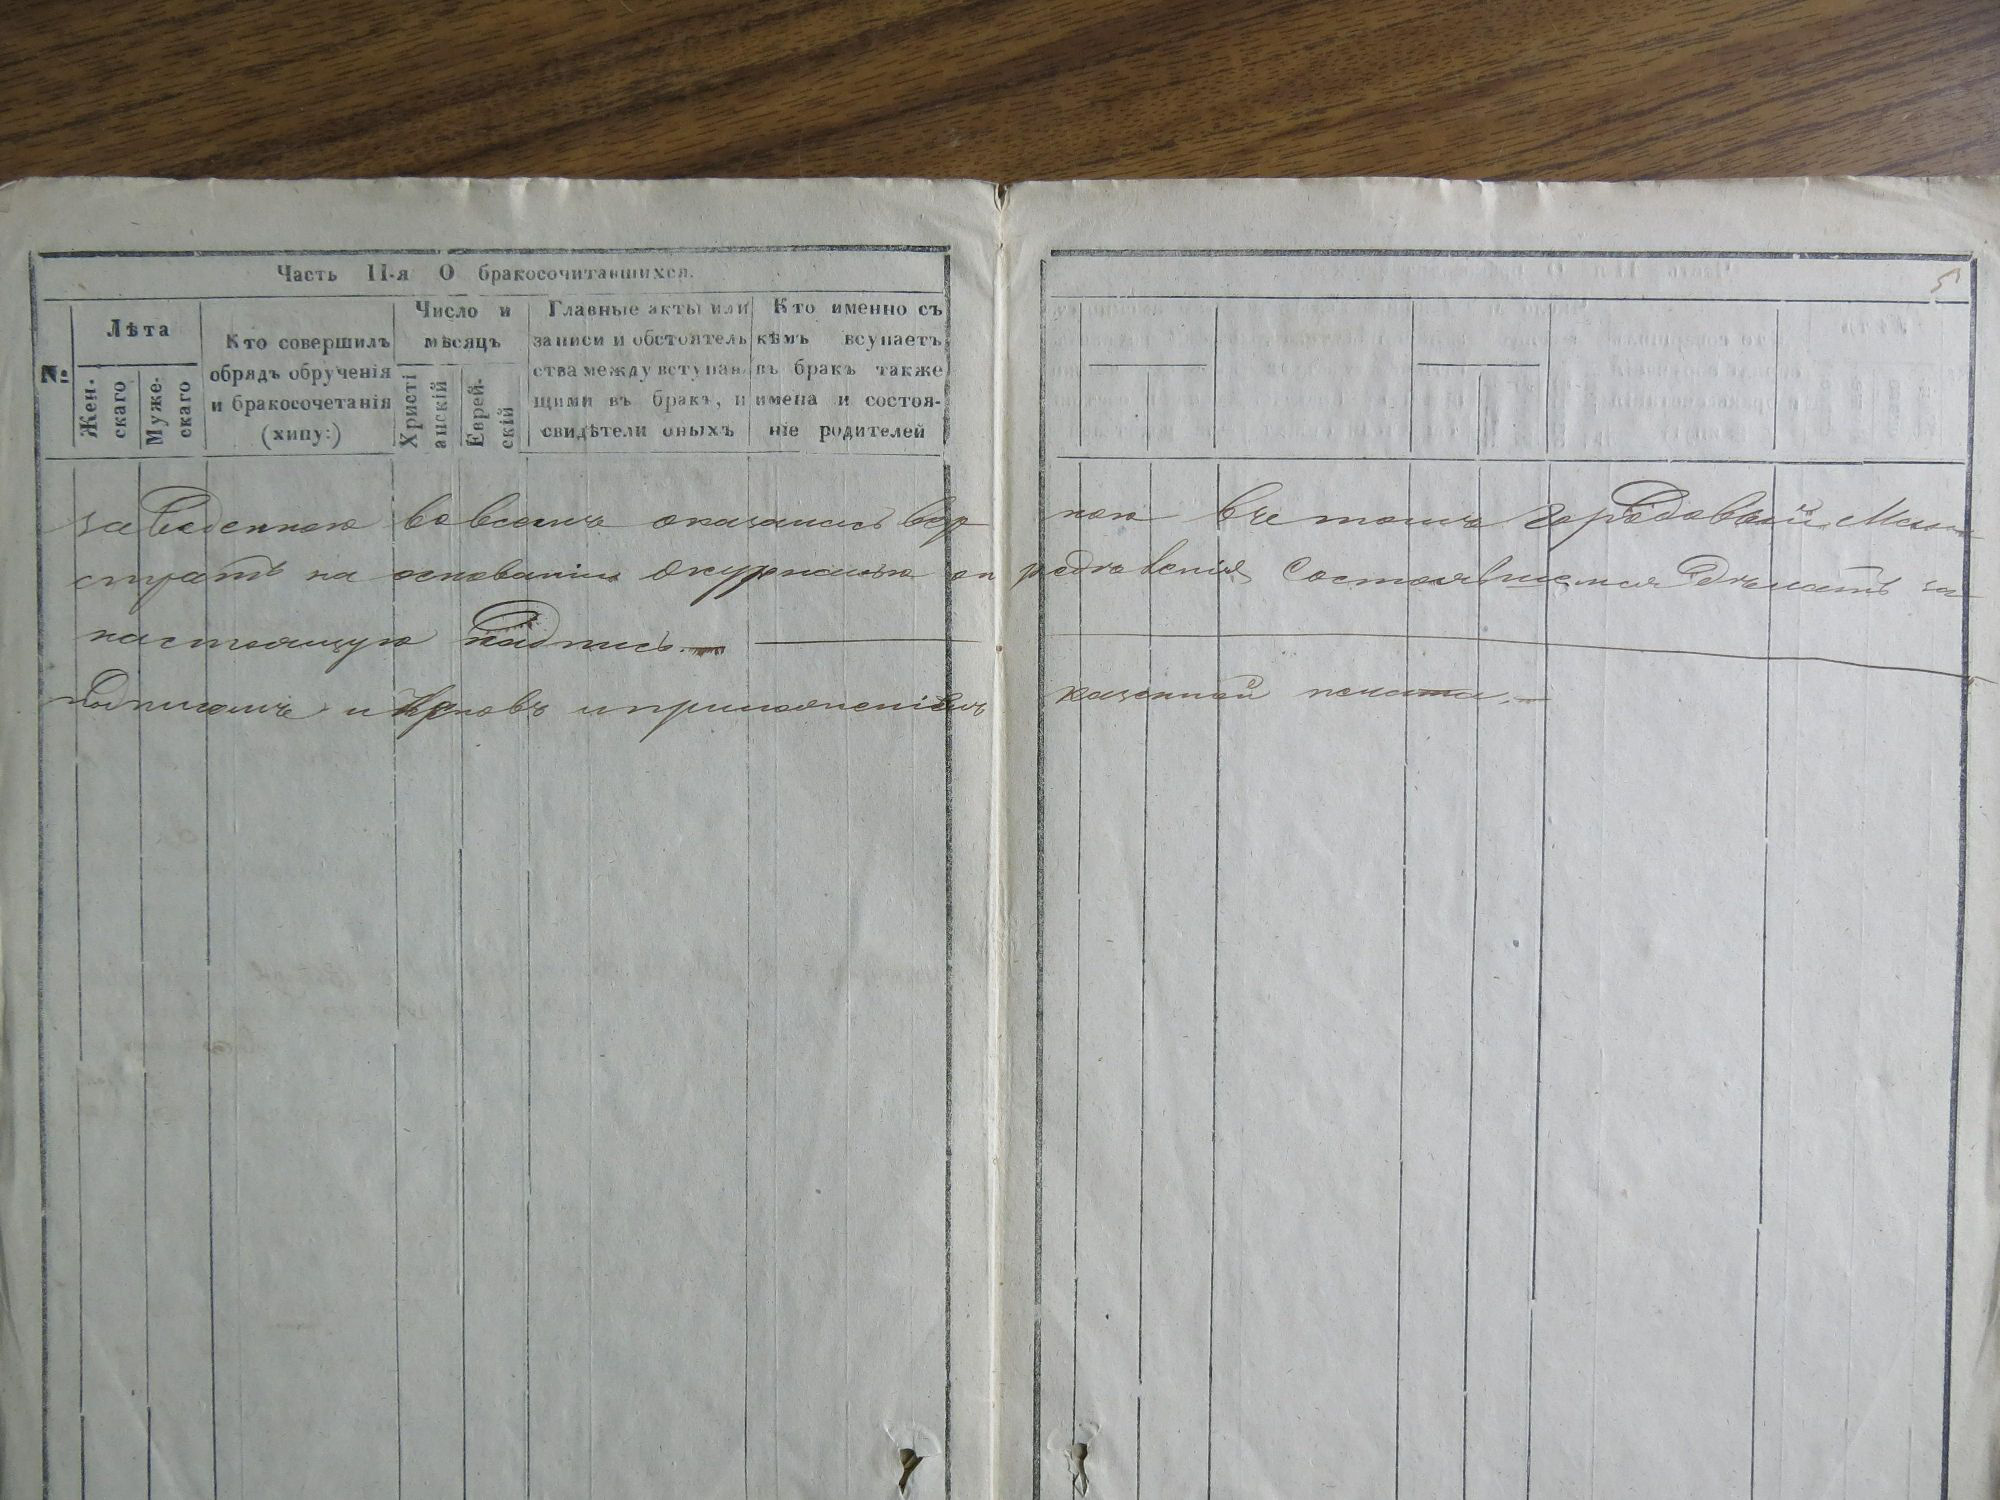 Часть II-я О бракосочитавшихся.
5
№
Лѣта
Жен-
скаго
Муже-
скаго
Кто совершилъ
обрядъ обрученія
и бракосочетанія
(хипу:)
Число и
мѣсяцъ
Христі
анскій
Еврей-
скій
Главные акты или
записи и обстоятель
ства между вступаю
щими въ бракъ, и
свидѣтели оныхъ
Кто именно съ
кѣмъ всупаетъ
въ бракъ также
имена и состоя-
ніе родителей
во всемъ оказалась вѣр ною въ чемъ Городовый Маги
стратъ на основаніи оп редѣленія состоявшемся
настоящую надпись.
казенной печати.